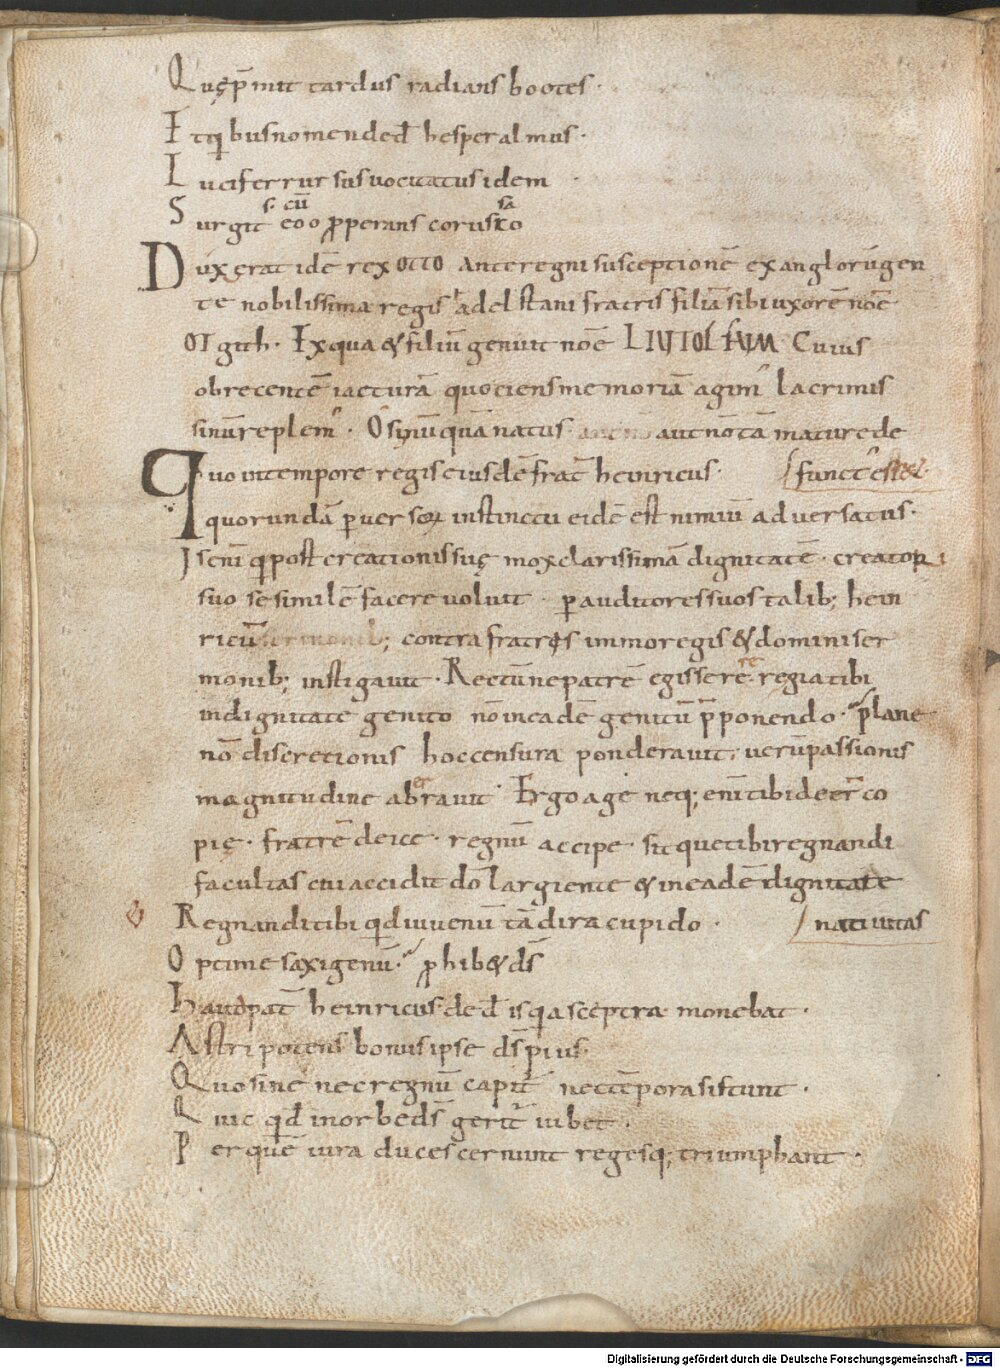 Quę p̄mit tardus radians bootes·
Itq; ibus nomen deđ hesper almus·
Lucifer rursus uocitatus idem
s· cū sa
Surgit eoo ꝓperans corusco
Duxerat idē rex OTTO ante regni susceptionē ex anglorū gen
te nobilissima regis adelstani fratris filiā sibi uxorē noē
OTgith· Ex qua & filiū genuit noē LIUTOLFUM Cuius
ob recentē iacturā quociens memoriā agim᷒ lacrimis
sinū replem᷒· O si nūquā natus aut nō tā mature de
Quo in tempore regis eiusdē frat̄ heinricus· functꝰ esset·
quorundā peruersoꝝ instinctu eidē est nimiū aduersatus·
Is enī qi post creationis suę mox clarissimā dignitatē· creatori
suo se similē facere uoluit· ꝑ auditores suos talib; hein
ricū contra fratrēs immo regis & domini ser
monib; instigauit· Rectū ne patrē egisse rere regia tibi
in dignitate genito nō in eadē genitū p̄ponendo· plane
nō discretionis hoc censura ponderauit· uerū passionis
magnitudine aberrauit· Ergo age neq; enī tibi deer̄ co
pię· fratrē deice· regnū accipe· sitque tibi regnandi
facultas cui accidit dō largiente & in eadē dignitate
Regnandi tibi qd iuuenū tā dira cupido· natiuitas
Optime saxigenū· ꝓhib& ds̄
Haud pat̄ heinricus· deđ is qi a sceptra· monebat·
Astripotens bonus ipse ds̄ pius·
Quo sine nec regnū capit᷒ nec tēpora sistunt·
Quic qđ in orbe ds̄ gerit᷒ iubet·
Per quē iura duces cernunt regesq; triumphant·
Digitalisierung gefördert durch die Deutsche Forschungsgemeinschaft - DFG